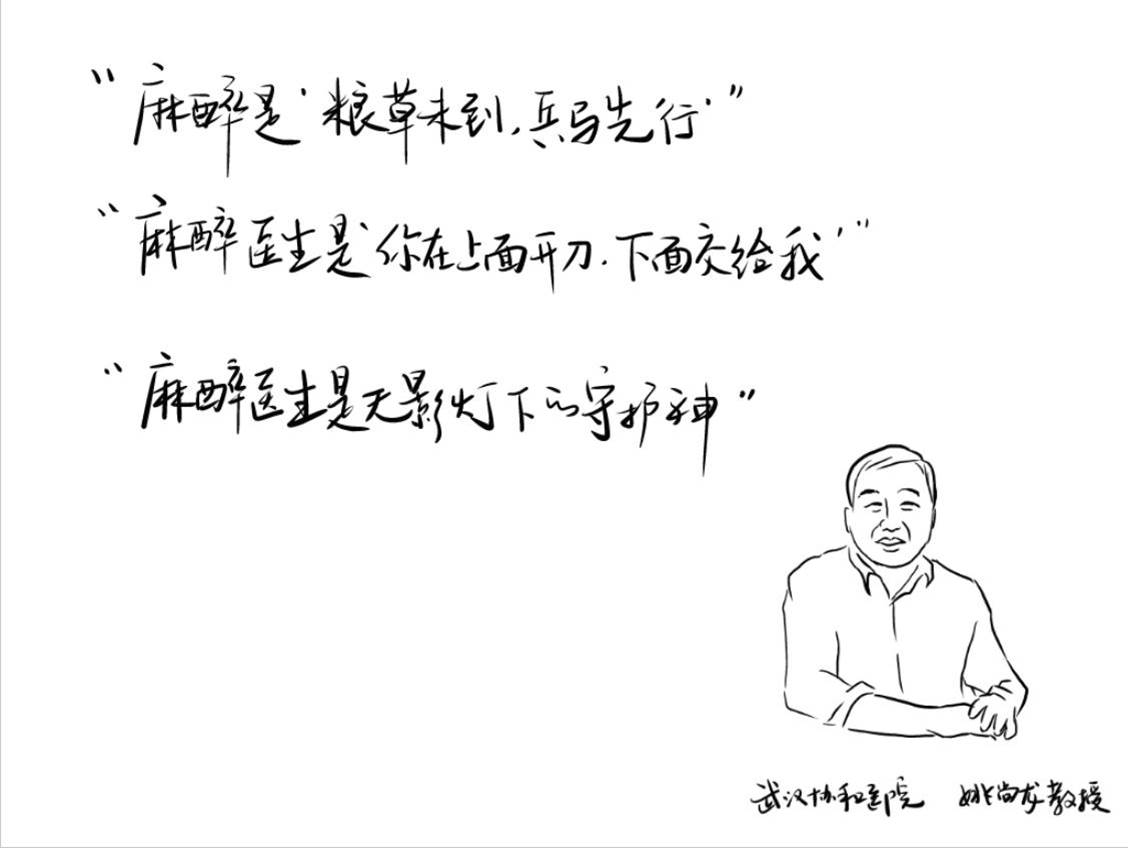 “麻醉是‘粮草未到，兵马先行’”
“麻醉医生是‘你在上面开刀，下面交给我’”
“麻醉医生是无影灯下的守护神”
武汉协和医院 姚尚龙教授